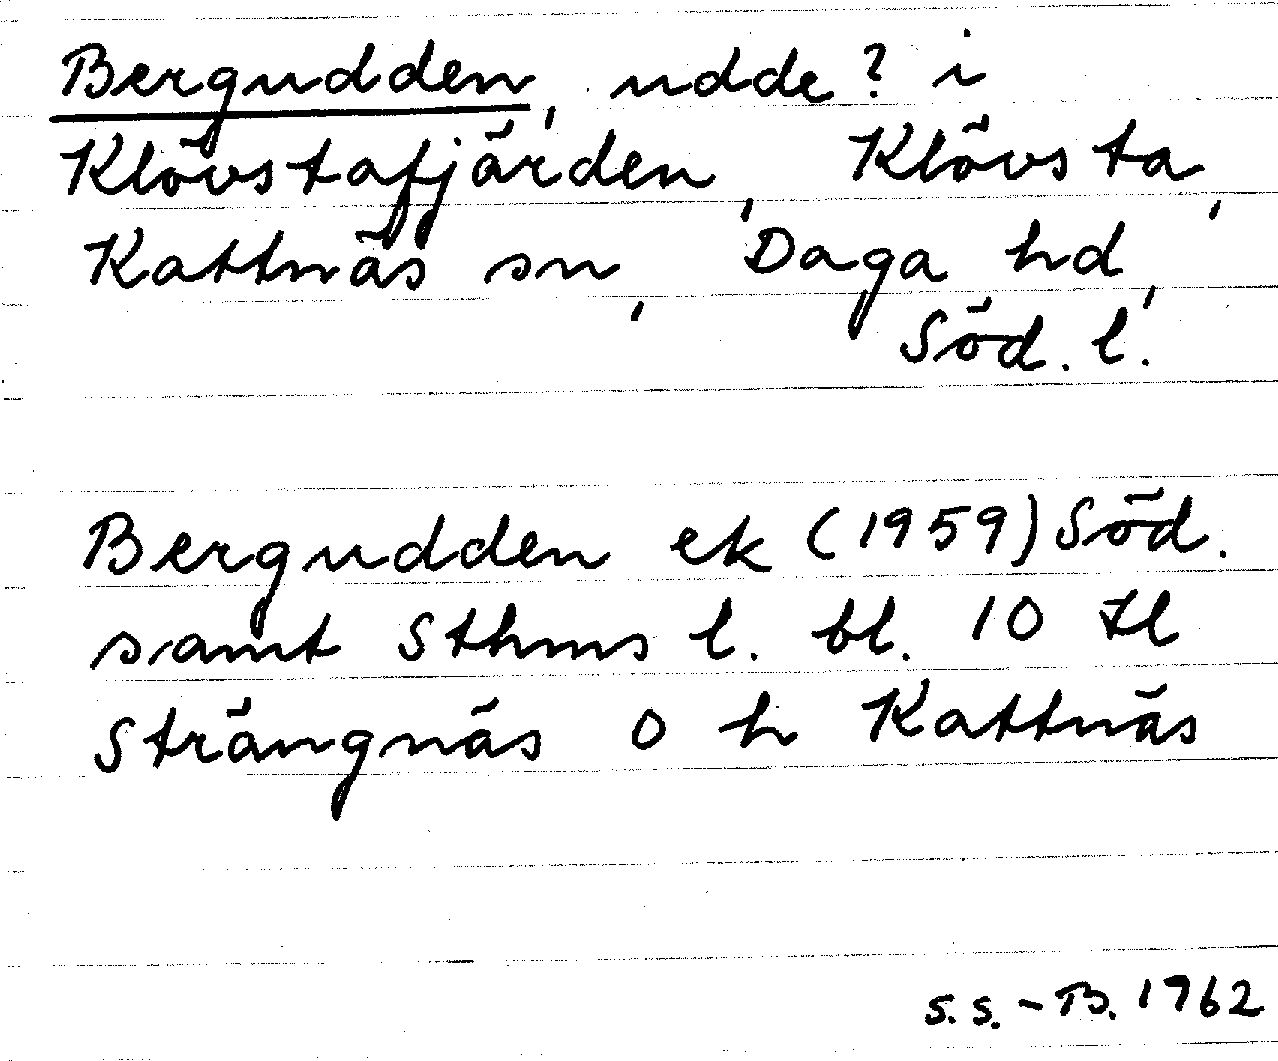 Bergudden, udde? i
Klövstafjärden, Klövsta,
Kattnäs sn, Daga hd,
Söd. l.
Bergudden ek (1959) Söd.
samt Sthms l. bl. 10 tl
Strängnäs o h Kattnäs
S.S.-B. 1962